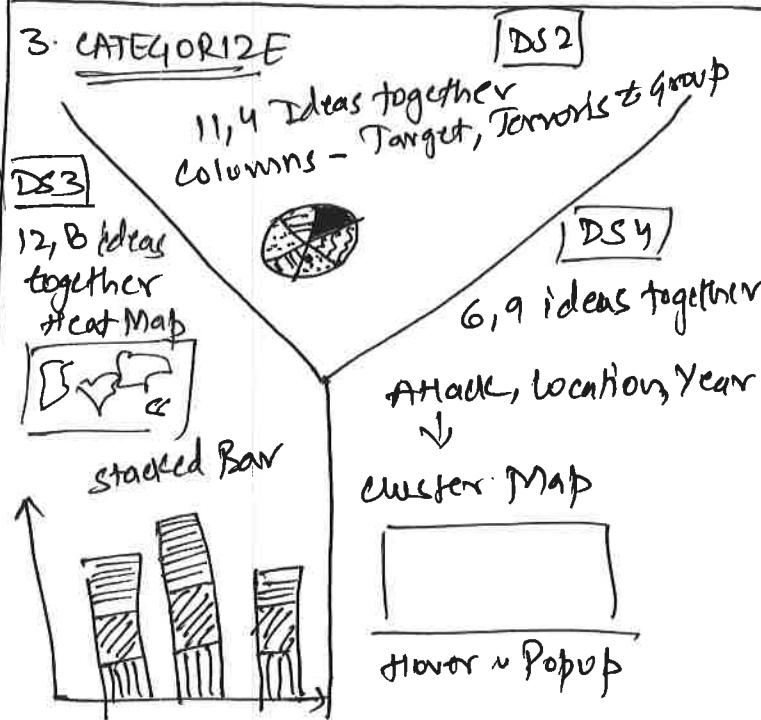 3. CATEGORIZE
DS2
11,4 Ideas together
Columns - Target, Terrorist Group
DS3
12,B ideas
together
Heat Map
stacked Bar
DS4
6,9 ideas together
Attack, Location, Year
↓
Cluster Map
Hover ~ Popup